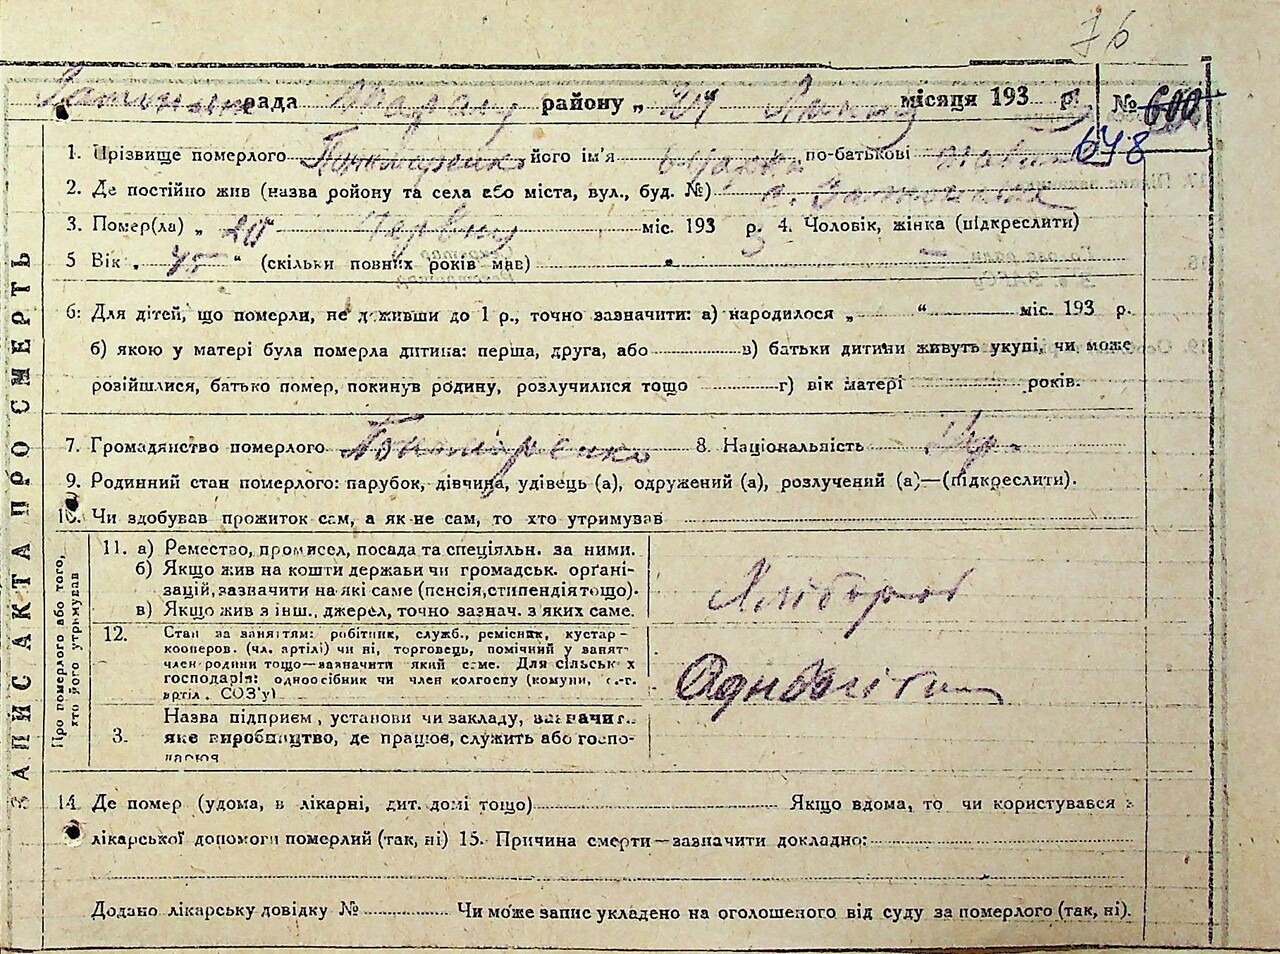 76
рада району „ місяця 193 р. № 600
678
1. Прізвище померлого Пономаренко його ім'я по-батькові
2. Де постійно жив (назва району та села або міста, вул., буд. №) с.
3. Помер(ла) „ 20 Червня міс. 193 3 р. 4. Чоловік, жінка (підкреслити)
5 Вік „ 45 “ (скільки повних років мав)
6: Для дітей, що померли, не д живши до 1 р., точно зазначити: а) народилося „ “ міс. 193 р.
б) якою у матері була померла дитина: перша, друга, або в) батьки дитини живуть укупі, чи може
розійшлися, батько помер, покинув родину, розлучилися тощо г) вік матері років.
7. Громадянство померлого Пономаренко 8. Національність Укр.
9. Родинний стан померлого: парубок, дівчина, удівець (а), одружений (а), розлучений (а)—(підкреслити).
10. Чи здобував прожиток сам, а як не сам, то хто утримував
ЗАПИС АКТА ПРО СМЕРТЬ
Про померлого або того, хто його утримував
11. а) Ремество, промисел, посада та спеціяльн. за ними.
б) Якщо жив на кошти держави чи громадськ. орґані-
зацій, зазначити на які саме (пенсія, стипендія тощо).
в) Якщо жив з інш., джерел, точно зазнач. з яких саме.
Хлібороб
12. Стан за заняттям: робітник, служб., ремісник, кустар-
кооперов. (чл. артілі) чи ні, торговець, помічний у занят-
член родини тощо—зазначити який саме. Для сільськ х
господарів: одноосібник чи член колгоспу (комуни, с.-г.
артіл. СОЗ'у)
3. Назва підприєм, установи чи закладу, зазначит..
яке виробництво, де працюв, служить або госпо-
14. Де помер (удома, в лікарні, дит. домі тощо) Якщо вдома, то чи користувався з
лікарської допомоги померлий (так, ні) 15. Причина смерти—зазначити докладно:
Додано лікарську довідку № Чи може запис укладено на оголошеного від суду за померлого (так, ні).